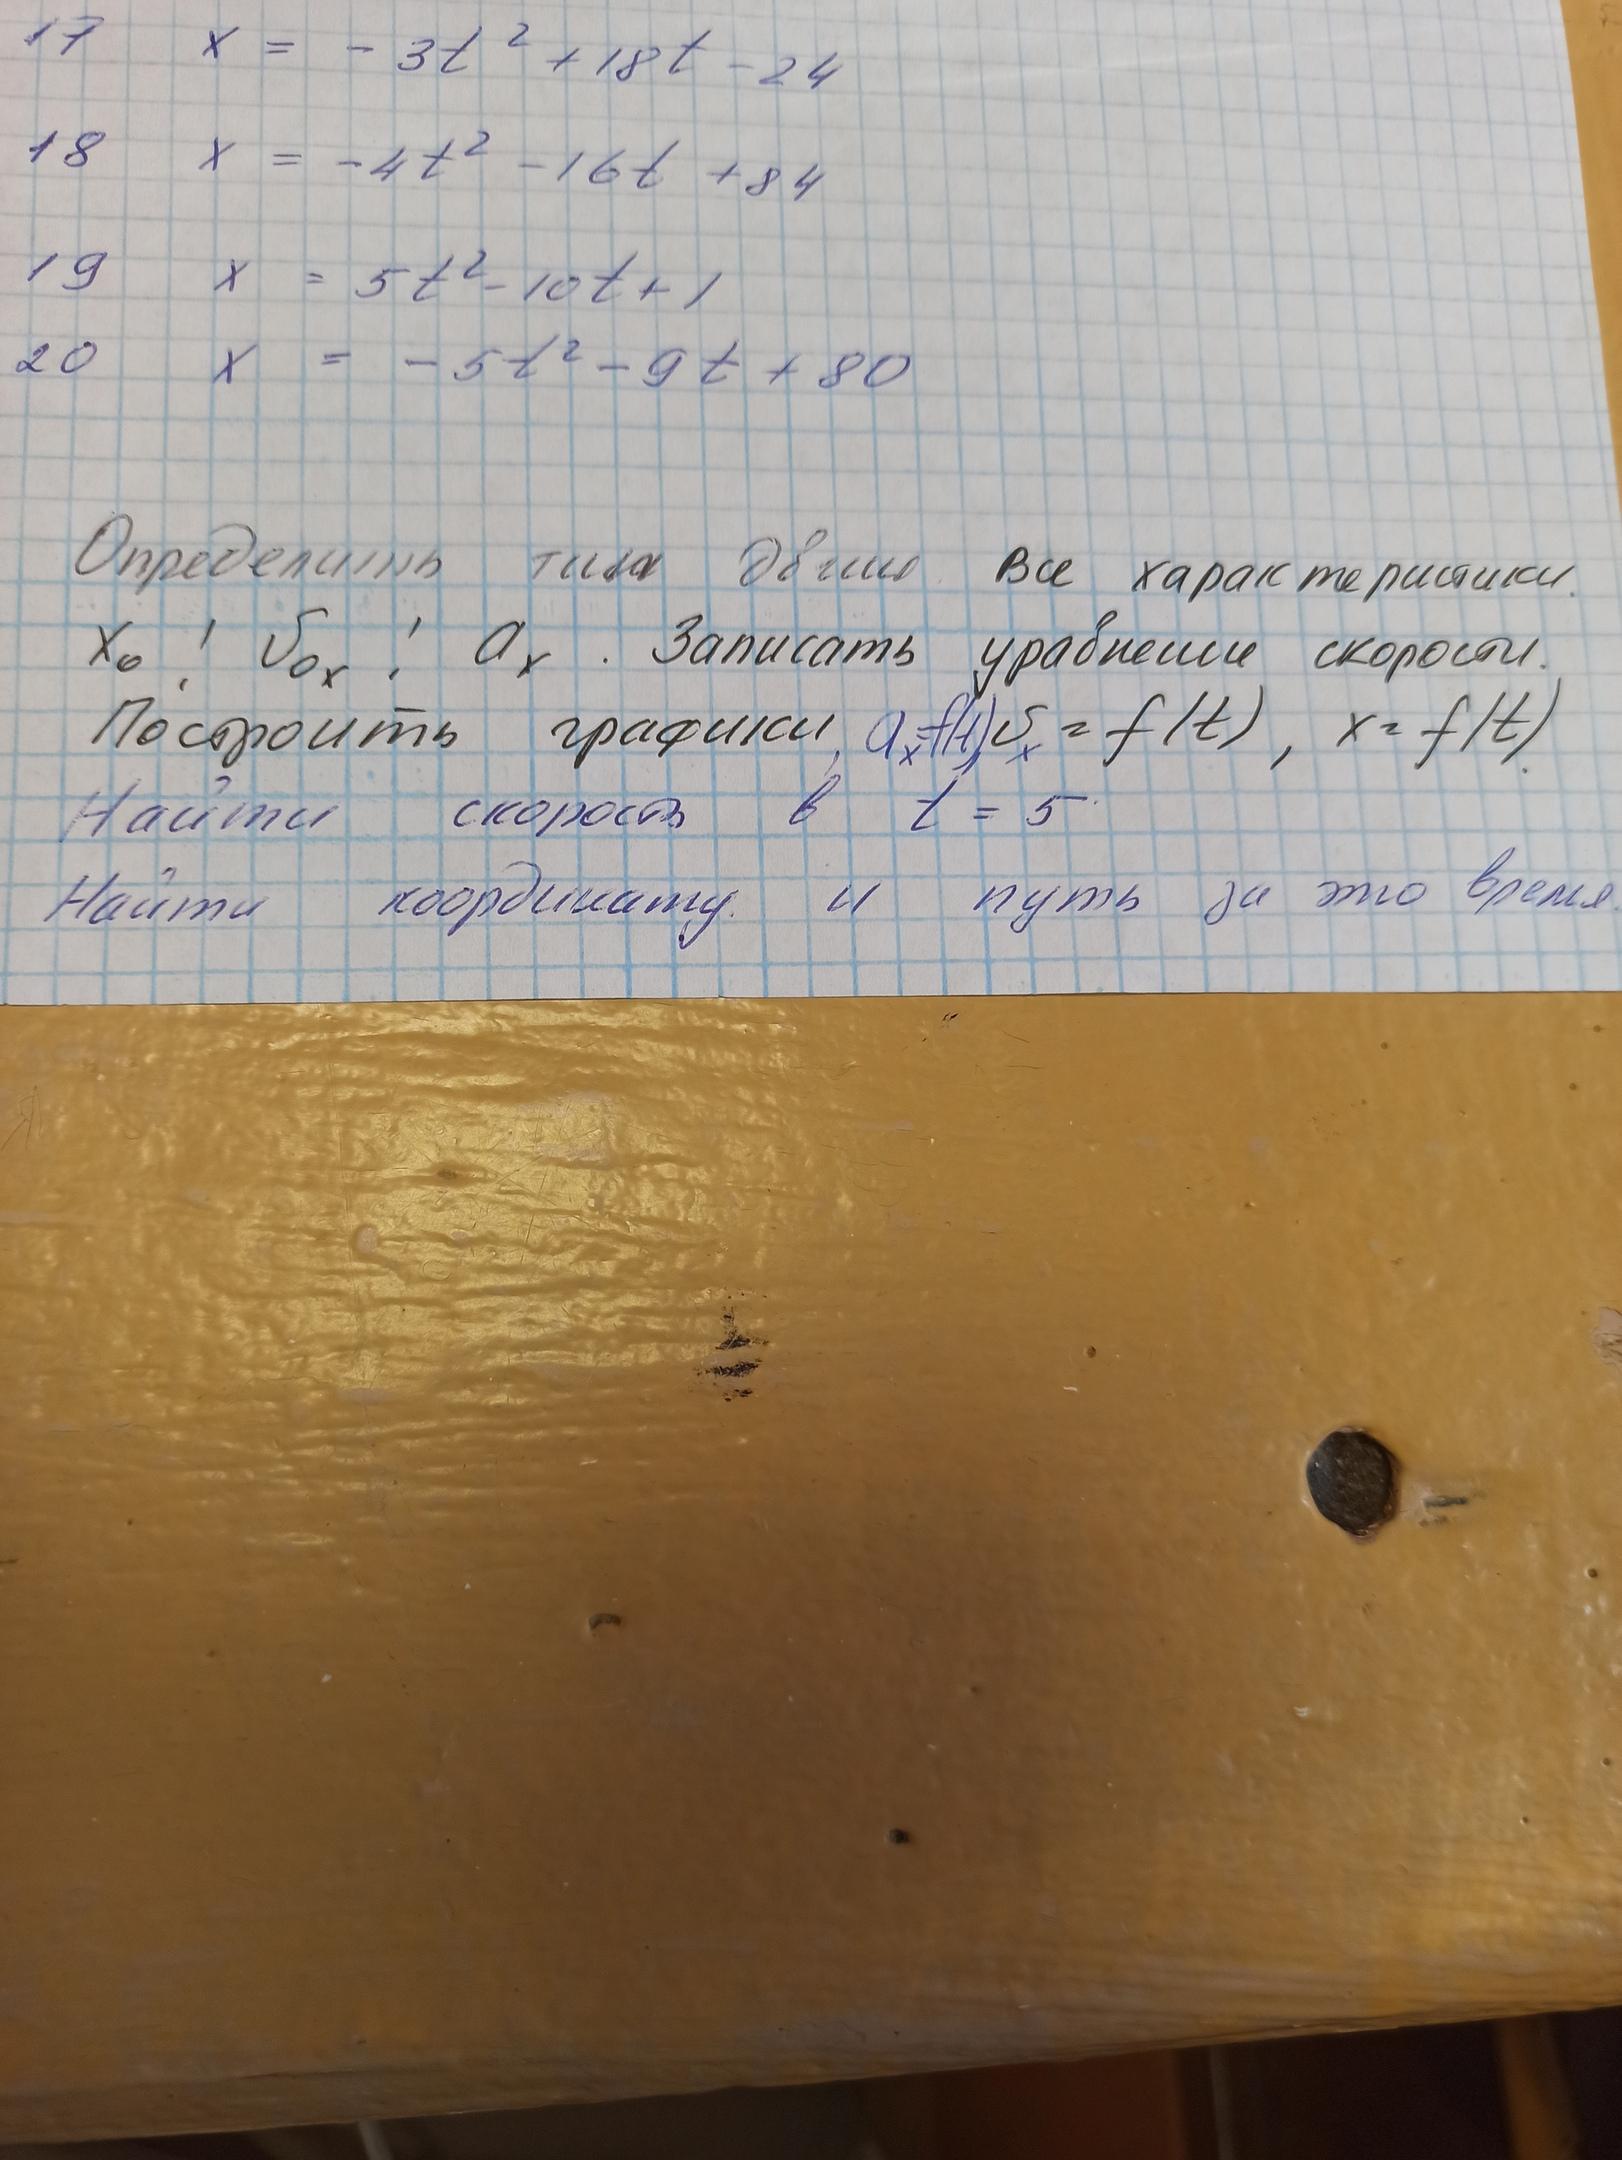 17 x = - 3t² + 18t - 24
18 x = -4t² - 16t + 84
19 x = 5t² - 10t + 1
20 x = - 5t² - 9t + 80
Определить тип движ. Все характеристики.
x₀; v₀ₓ; aₓ. Записать уравнение скорости.
Построить графики, aₓ=f(t), vₓ = f(t), x = f(t).
Найти скорость в t = 5
Найти координату и путь за это время.